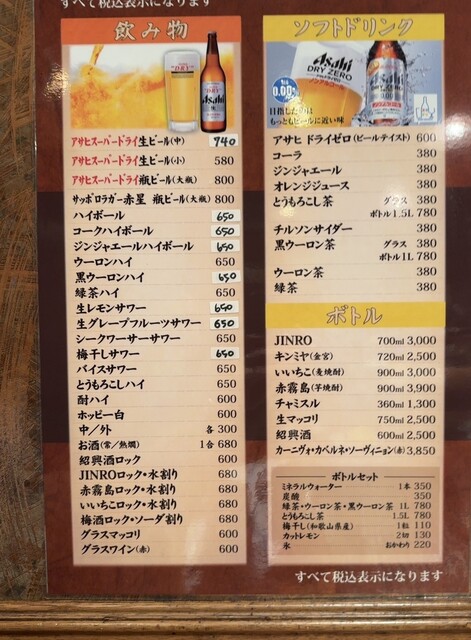 すべて税込表示になります
飲み物
アサヒスーパードライ生ビール(中) 740
アサヒスーパードライ生ビール(小) 580
アサヒスーパードライ瓶ビール(大瓶) 800
サッポロラガー赤星 瓶ビール(大瓶) 800
ハイボール 650
コークハイボール 650
ジンジャエールハイボール 650
ウーロンハイ 650
黒ウーロンハイ 650
緑茶ハイ 650
生レモンサワー 650
生グレープフルーツサワー 650
シークワーサーサワー 650
梅干しサワー 650
バイスサワー 650
とうもろこしハイ 650
酎ハイ 600
ホッピー白 600
中/外 各300
お酒(常/熱燗) 1合 680
紹興酒ロック 600
JINROロック・水割り 680
赤霧島ロック・水割り 680
いいちこロック・水割り 680
梅酒ロック・ソーダ割り 680
グラスマッコリ 600
グラスワイン(赤) 600
ソフトドリンク
Asahi
DRY ZERO
0.00%
目指したのは
もっともビールに近い味
アサヒ ドライゼロ(ビールテイスト) 600
コーラ 380
ジンジャエール 380
オレンジジュース 380
とうもろこし茶 グラス 380
ボトル1.5L 780
チルソンサイダー 380
黒ウーロン茶 グラス 380
ボトル1L 780
ウーロン茶 380
緑茶 380
ボトル
JINRO 700ml 3,000
キンミヤ(金宮) 720ml 2,500
いいちこ(麦焼酎) 900ml 3,000
赤霧島(芋焼酎) 900ml 3,900
チャミスル 360ml 1,300
生マッコリ 750ml 2,500
紹興酒 600ml 2,500
カーニヴォ・カベルネ・ソーヴィニョン(赤) 3,850
ボトルセット
ミネラルウォーター 1本 350
炭酸 350
緑茶・ウーロン茶・黒ウーロン茶 1L 780
とうもろこし茶 1.5L 780
梅干し(和歌山県産) 1粒 110
カットレモン 2切 130
氷 おかわり 220
すべて税込表示になります